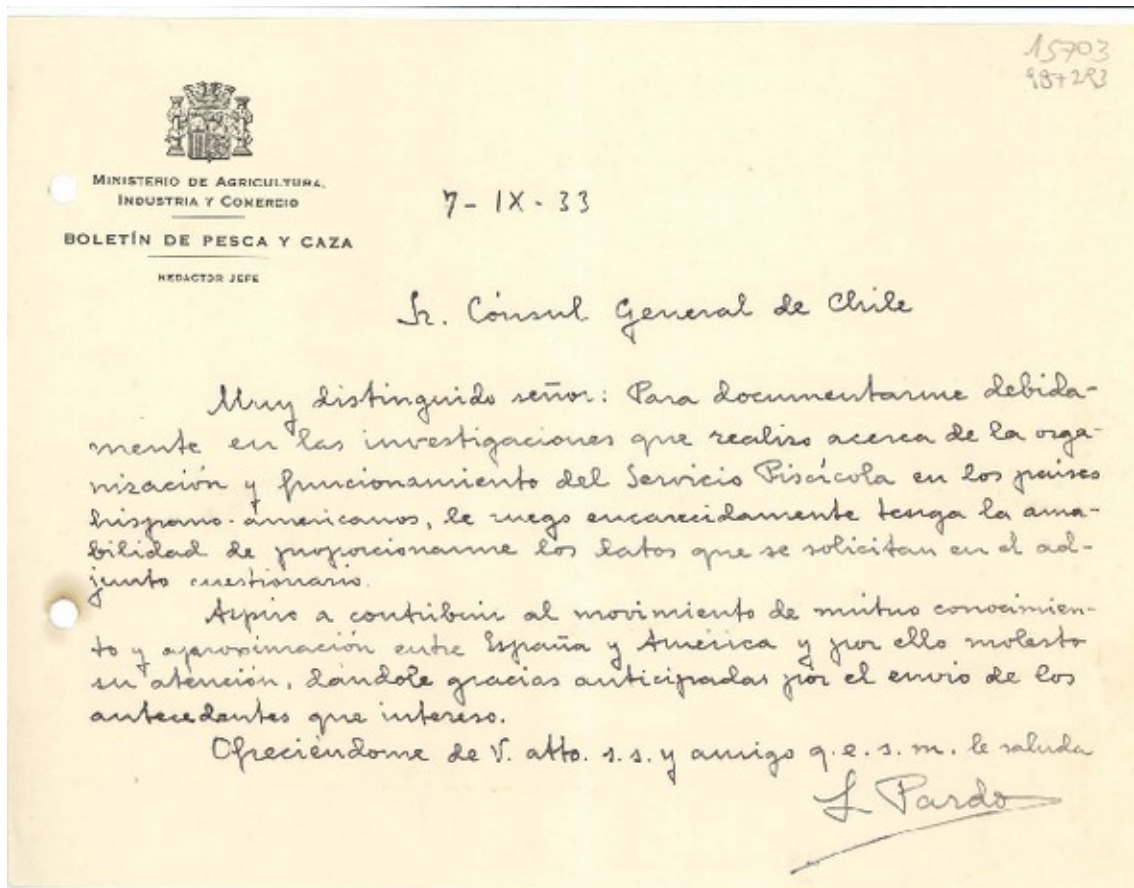 15703
MINISTERIO DE AGRICULTURA,
INDUSTRIA Y COMERCIO
BOLETÍN DE PESCA Y CAZA
REDACTOR JEFE
7-IX-33
Sr. Cónsul General de Chile
Muy distinguido señor: Para documentarme debida-
mente en las investigaciones que realizo acerca de la orga-
nización y funcionamiento del Servicio Piscícola en los países
hispano-americanos, le ruego encarecidamente tenga la ama-
bilidad de proporcionarme los datos que se solicitan en el ad-
junto cuestionario.
Aspiro a contribuir al movimiento de mútuo conocimien-
to y aproximación entre España y América y por ello molesto
su atención, dándole gracias anticipadas por el envio de los
antecedentes que intereso.
Ofreciéndome de V. atto. s.s. y amigo q.e.s.m. le saluda
L Pardo